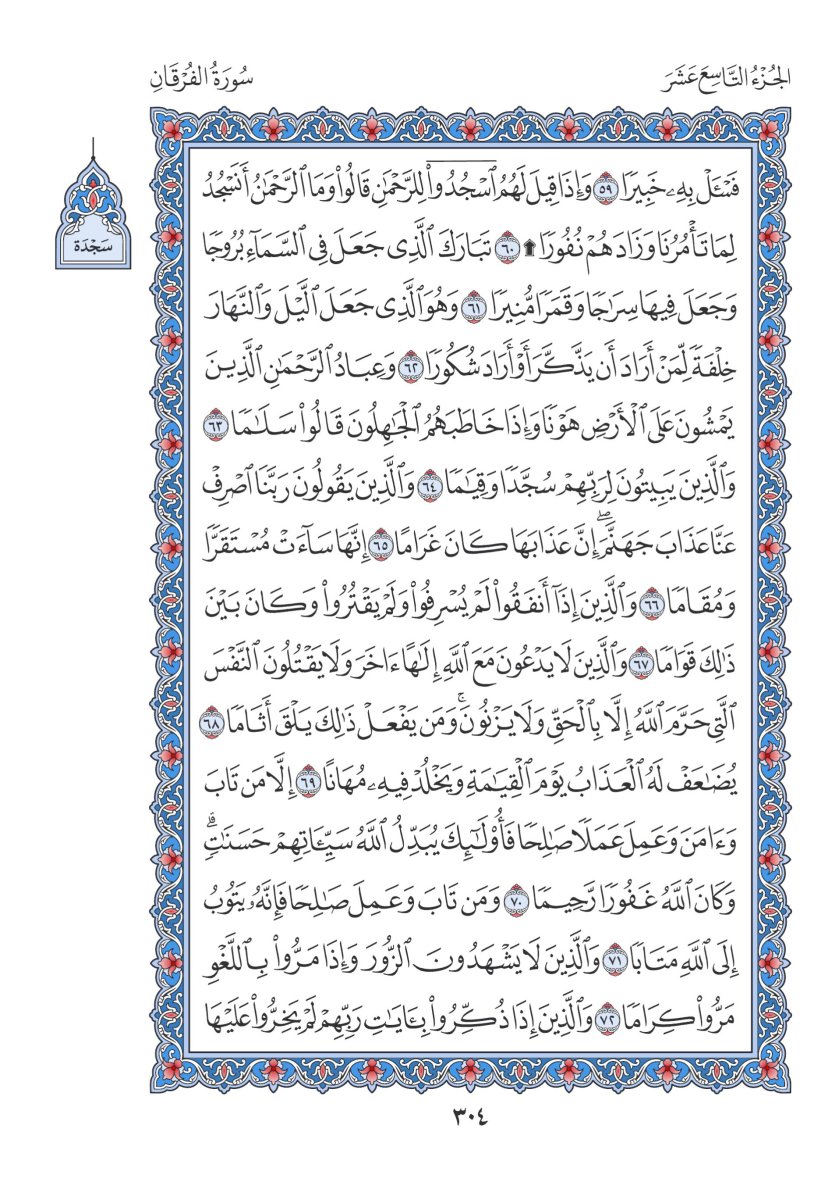 الجُزْءُ التَّاسِعَ عَشَرَ
سُورَةُ الفُرْقَانِ
سَجْدَة
فَسْـَٔلْ بِهِۦ خَبِيرًا ٥٩ وَإِذَا قِيلَ لَهُمُ ٱسْجُدُوا۟ لِلرَّحْمَٰنِ قَالُوا۟ وَمَا ٱلرَّحْمَٰنُ أَنَسْجُدُ
لِمَا تَأْمُرُنَا وَزَادَهُمْ نُفُورًا ۩ ٦٠ تَبَارَكَ ٱلَّذِى جَعَلَ فِى ٱلسَّمَآءِ بُرُوجًا
وَجَعَلَ فِيهَا سِرَٰجًا وَقَمَرًا مُّنِيرًا ٦١ وَهُوَ ٱلَّذِى جَعَلَ ٱلَّيْلَ وَٱلنَّهَارَ
خِلْفَةً لِّمَنْ أَرَادَ أَن يَذَّكَّرَ أَوْ أَرَادَ شُكُورًا ٦٢ وَعِبَادُ ٱلرَّحْمَٰنِ ٱلَّذِينَ
يَمْشُونَ عَلَى ٱلْأَرْضِ هَوْنًا وَإِذَا خَاطَبَهُمُ ٱلْجَٰهِلُونَ قَالُوا۟ سَلَٰمًا ٦٣
وَٱلَّذِينَ يَبِيتُونَ لِرَبِّهِمْ سُجَّدًا وَقِيَٰمًا ٦٤ وَٱلَّذِينَ يَقُولُونَ رَبَّنَا ٱصْرِفْ
عَنَّا عَذَابَ جَهَنَّمَ ۖ إِنَّ عَذَابَهَا كَانَ غَرَامًا ٦٥ إِنَّهَا سَآءَتْ مُسْتَقَرًّا
وَمُقَامًا ٦٦ وَٱلَّذِينَ إِذَآ أَنفَقُوا۟ لَمْ يُسْرِفُوا۟ وَلَمْ يَقْتُرُوا۟ وَكَانَ بَيْنَ
ذَٰلِكَ قَوَامًا ٦٧ وَٱلَّذِينَ لَا يَدْعُونَ مَعَ ٱللَّهِ إِلَٰهًا ءَاخَرَ وَلَا يَقْتُلُونَ ٱلنَّفْسَ
ٱلَّتِى حَرَّمَ ٱللَّهُ إِلَّا بِٱلْحَقِّ وَلَا يَزْنُونَ ۚ وَمَن يَفْعَلْ ذَٰلِكَ يَلْقَ أَثَامًا ٦٨
يُضَٰعَفْ لَهُ ٱلْعَذَابُ يَوْمَ ٱلْقِيَٰمَةِ وَيَخْلُدْ فِيهِۦ مُهَانًا ٦٩ إِلَّا مَن تَابَ
وَءَامَنَ وَعَمِلَ عَمَلًا صَٰلِحًا فَأُو۟لَٰٓئِكَ يُبَدِّلُ ٱللَّهُ سَيِّـَٔاتِهِمْ حَسَنَٰتٍ ۗ
وَكَانَ ٱللَّهُ غَفُورًا رَّحِيمًا ٧٠ وَمَن تَابَ وَعَمِلَ صَٰلِحًا فَإِنَّهُۥ يَتُوبُ
إِلَى ٱللَّهِ مَتَابًا ٧١ وَٱلَّذِينَ لَا يَشْهَدُونَ ٱلزُّورَ وَإِذَا مَرُّوا۟ بِٱللَّغْوِ
مَرُّوا۟ كِرَامًا ٧٢ وَٱلَّذِينَ إِذَا ذُكِّرُوا۟ بِـَٔايَٰتِ رَبِّهِمْ لَمْ يَخِرُّوا۟ عَلَيْهَا
٣٠٤